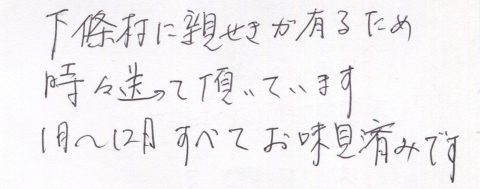 下條村に親せきが有るため
時々送って頂いています
1月〜12月すべてお味見済みです